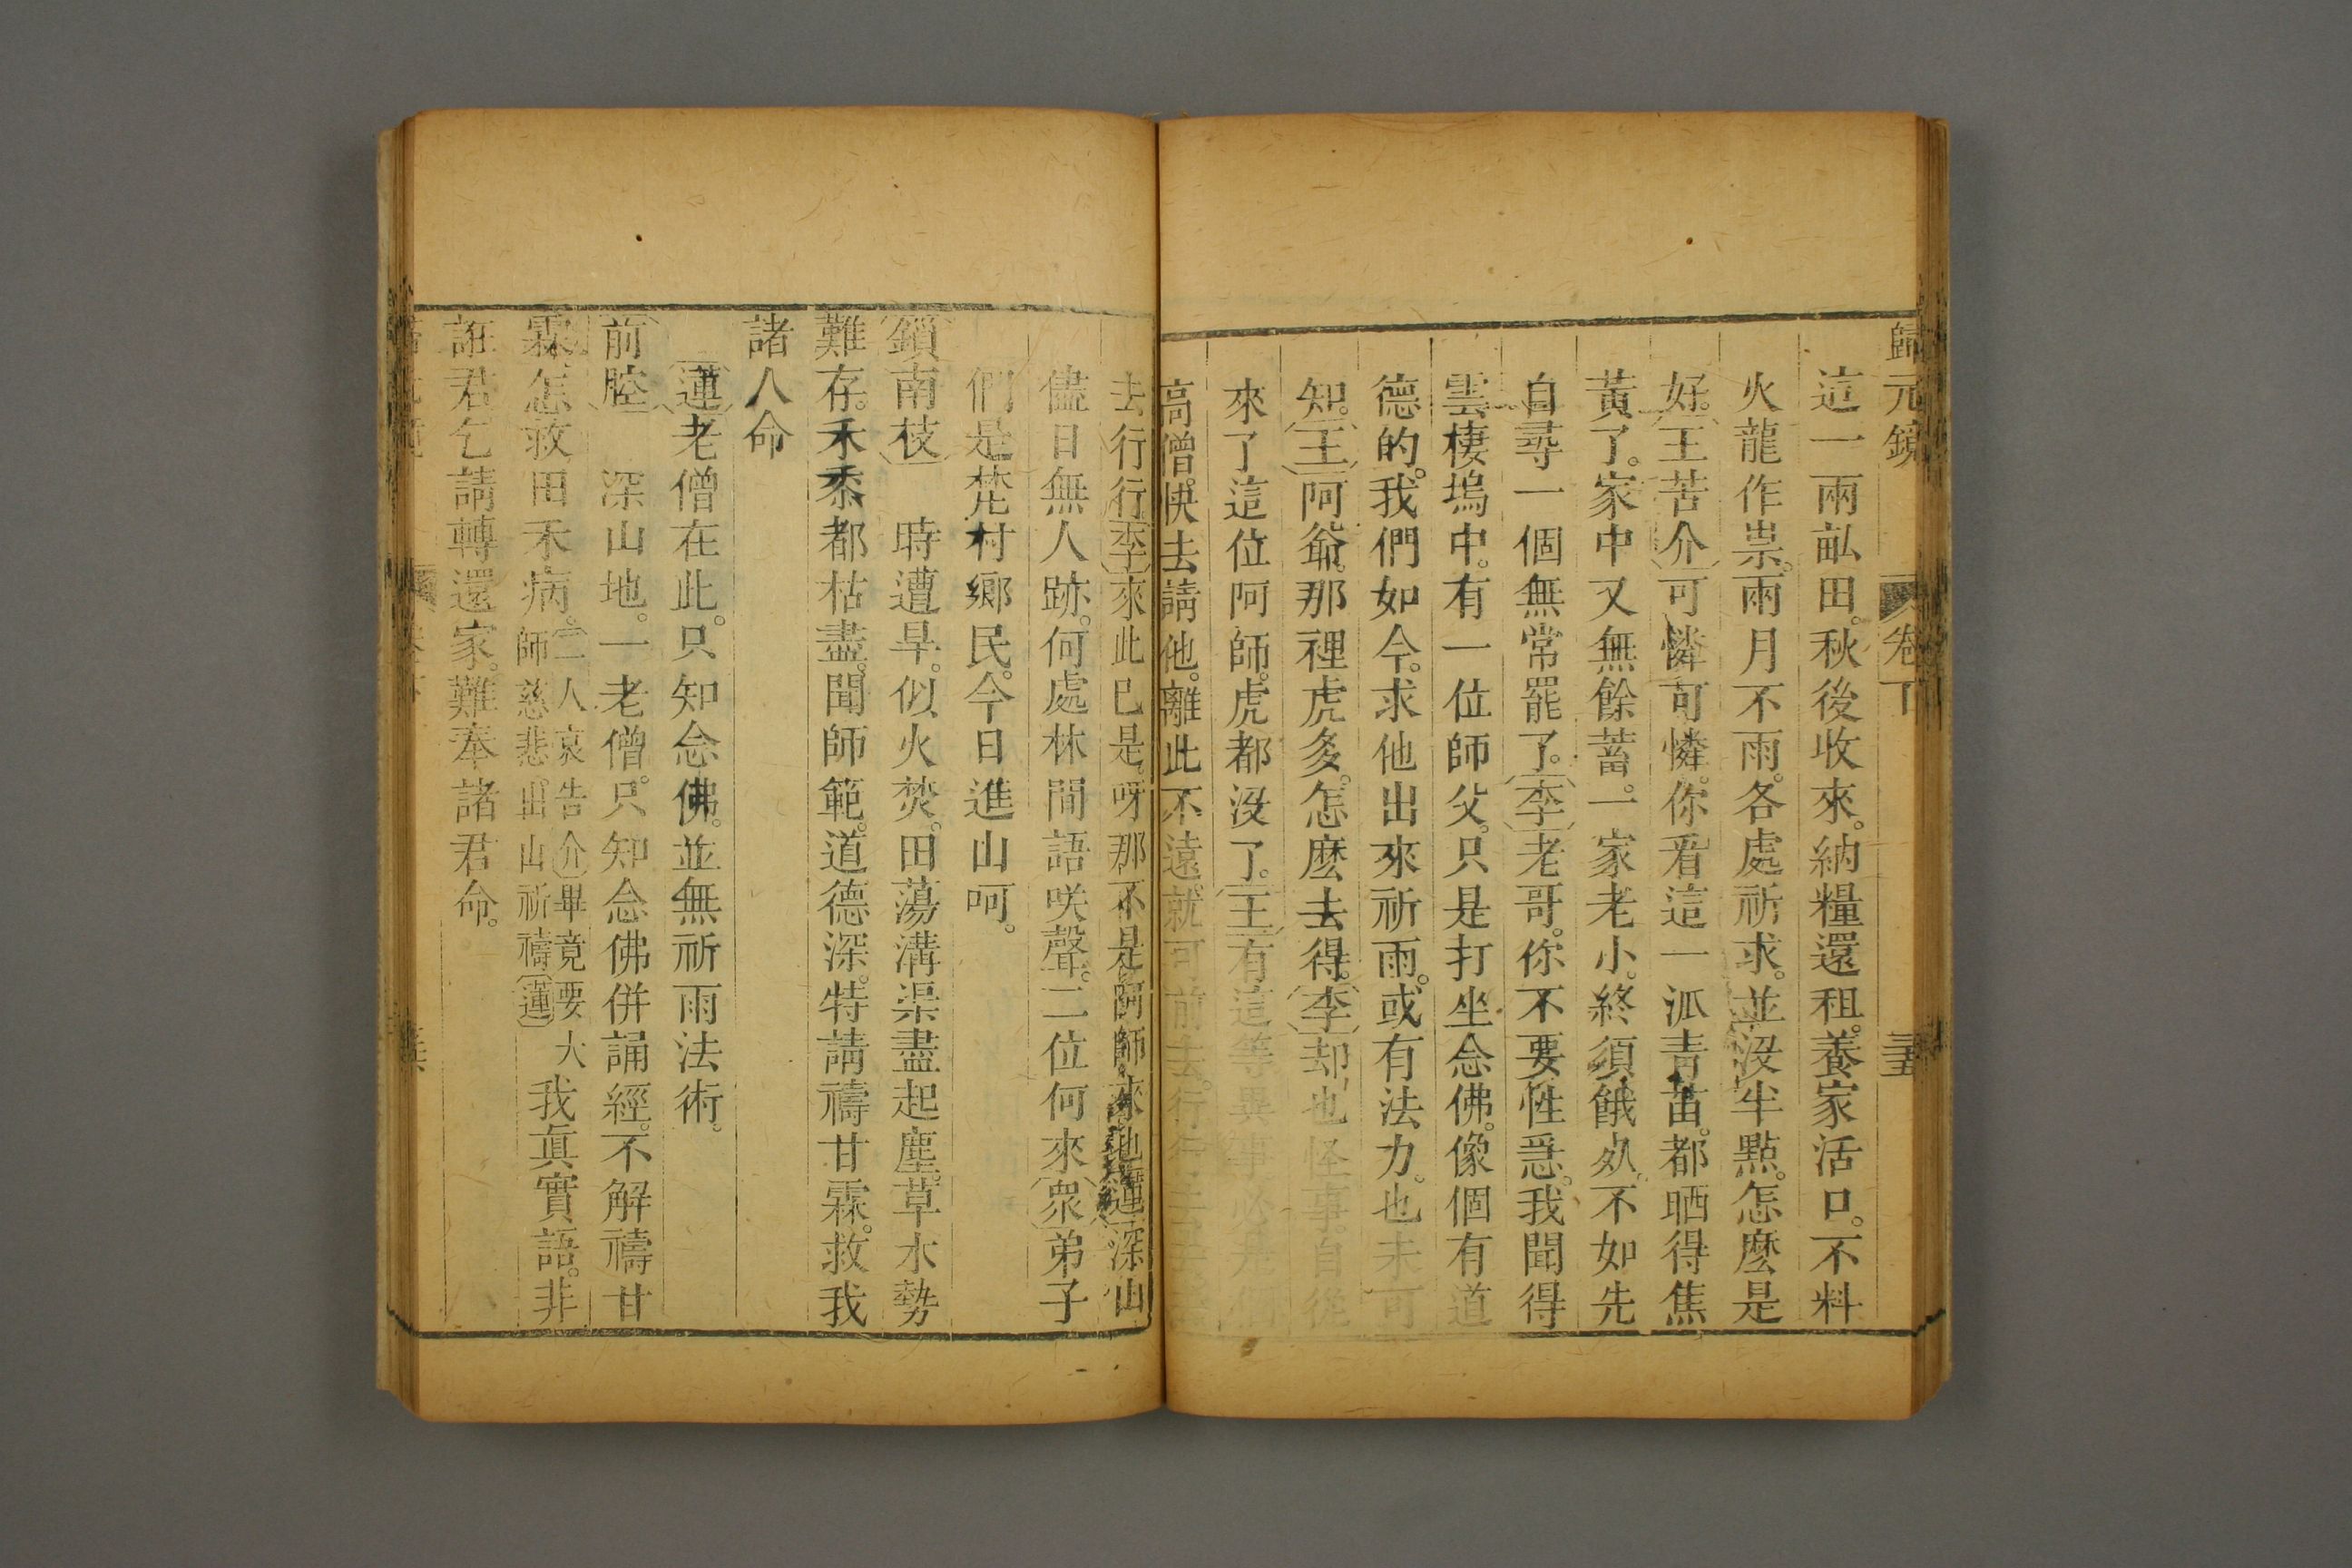 歸元鏡 卷下 三五
這一兩畝田。秋後收來。納糧還租。養家活口。不料
火龍作祟。兩月不雨。各處祈求。並沒半點。怎麽是
好。王苦介可憐可憐。你看這一派青苗。都晒得焦
黃了。家中又無餘蓄。一家老小。終須餓死。不如先
自尋一個無常罷了。李老哥。你不要性急。我聞得
雲棲塢中。有一位師父。只是打坐念佛。像個有道
德的。我們如今。求他出來祈雨。或有法力。也未可
知。王阿爺。那裡虎多。怎麽去得。李却也怪事自從
來了這位阿師。虎都沒了。王有這等異事必是個
高僧。快去請他。離此不遠。就可前去。行行
去行行李來此已是。呀那不是阿師來也蓮深山
儘日無人跡。何處林間語咲聲。二位何來衆弟子
們是梵村鄉民。今日進山呵。
鎖南枝 時遭旱。似火焚。田蕩溝渠盡起塵。草水勢
難存。禾黍都枯盡。聞師範。道德深。特請禱甘霖。救我
諸人命
蓮老僧在此。只知念佛。並無祈雨法術。
前腔 深山地。一老僧。只知念佛併誦經。不解禱甘
霖。怎救田禾病。二人哀告介畢竟要大師慈悲。出山祈禱蓮我眞實語。非
誑君乞請轉還家。難奉諸君命。